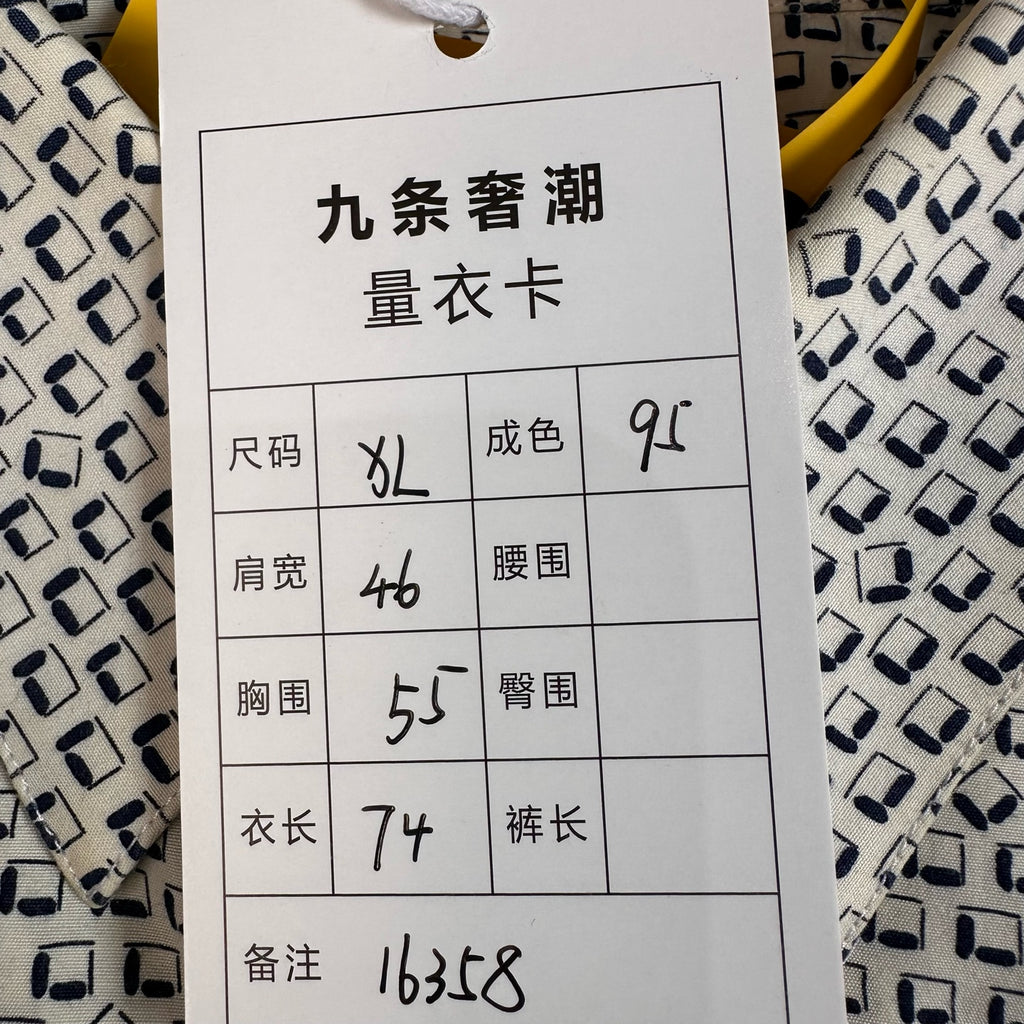 九条奢潮
量衣卡
尺码 XL 成色 95
肩宽 46 腰围
胸围 55 臀围
衣长 74 裤长
备注 16358